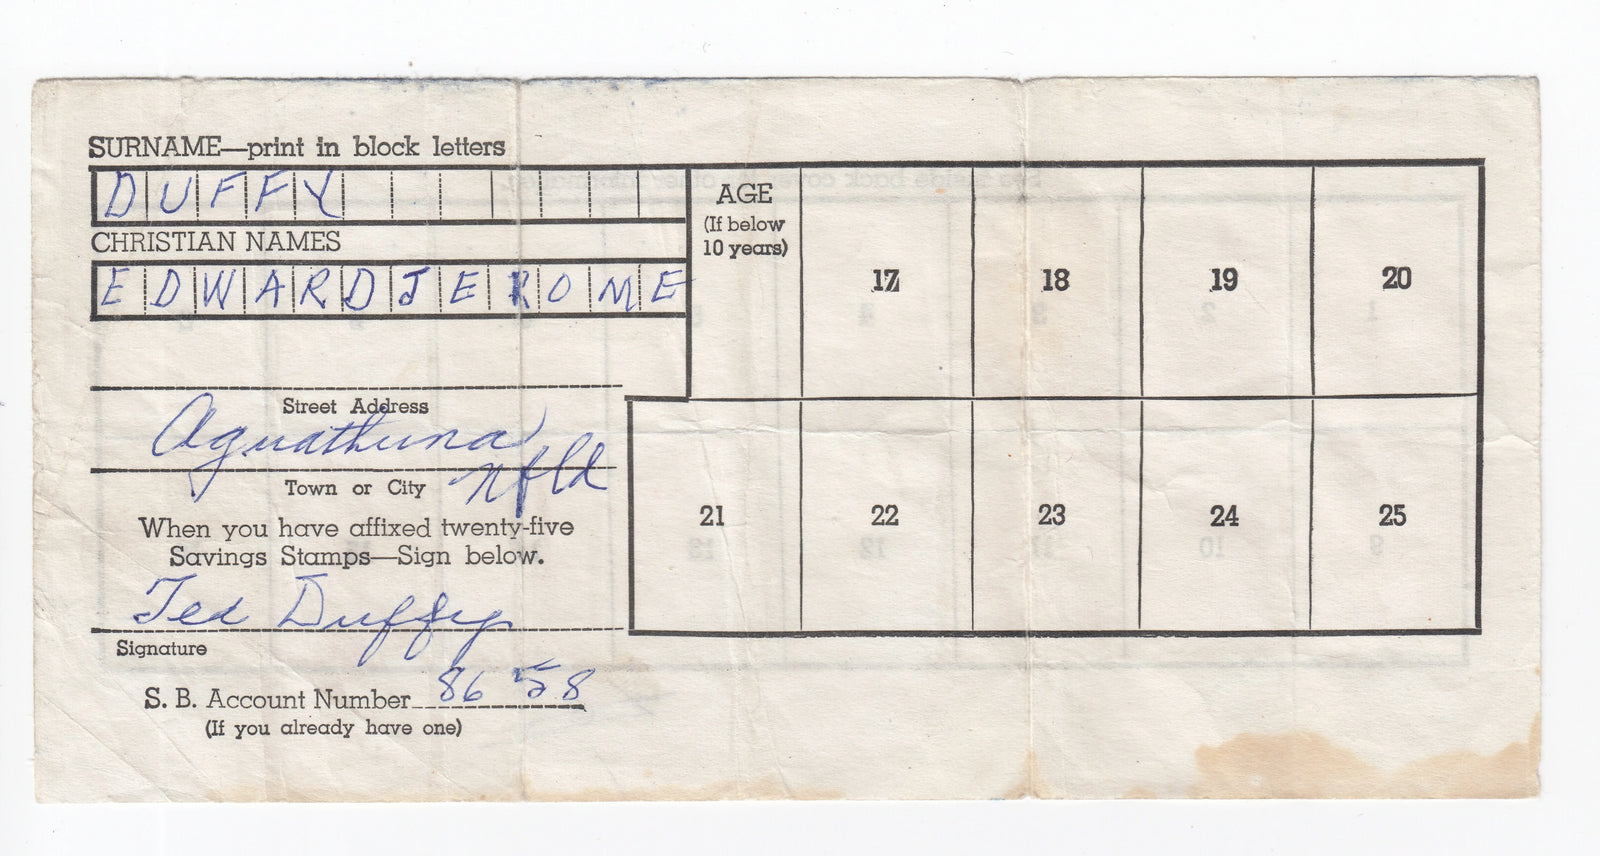 SURNAME—print in block letters
DUFFY
CHRISTIAN NAMES
EDWARDJEROME
AGE
(If below
10 years)
17 18 19 20
Street Address
Aguathuna
Nfld
Town or City
When you have affixed twenty-five
Savings Stamps—Sign below.
Ted Duffy
Signature
S. B. Account Number 8658
(If you already have one)
21 22 23 24 25